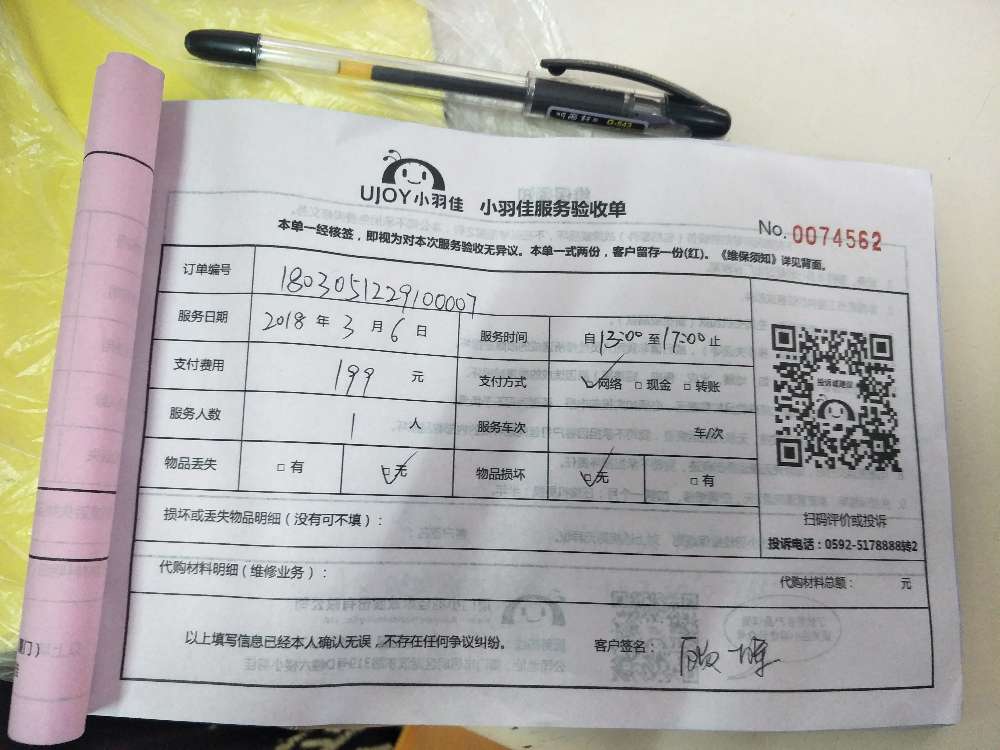 UJOY小羽佳 小羽佳服务验收单
No. 0074562
本单一经核签，即视为对本次服务验收无异议。本单一式两份，客户留存一份(红)。《维保须知》详见背面。
订单编号 1803051229100007
服务日期 2018 年 3 月 6 日 服务时间 自 13:00 至 17:00 止
支付费用 199 元 支付方式 ☑网络 □现金 □转账
服务人数 1 人 服务车次 车/次
物品丢失 □有 ☑无 物品损坏 ☑无 □有
投诉或建议
扫码评价或投诉
投诉电话：0592-5178888转2
损坏或丢失物品明细（没有可不填）：
代购材料明细（维修业务）： 代购材料总额： 元
以上填写信息已经本人确认无误，不存在任何争议纠纷。 客户签名：
门）